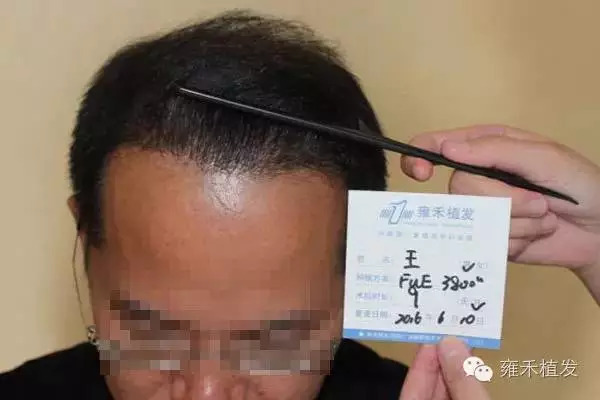 雍禾植发
姓 名: 王 男 女
种植方案: FUE 3800
术后时长: 9
复查日期: 2016 年 6 月 10 日
雍禾植发